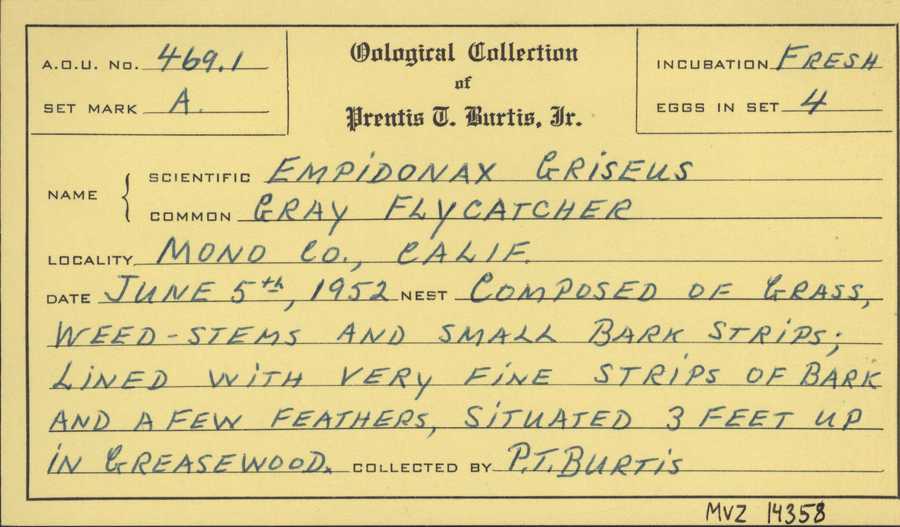 A.O.U. No. 469.1
SET MARK A.
Oological Collection
of
Prentis T. Burtis, Jr.
INCUBATION FRESH
EGGS IN SET 4
NAME { SCIENTIFIC EMPIDONAX GRISEUS
COMMON GRAY FLYCATCHER
LOCALITY MONO CO., CALIF.
DATE JUNE 5th, 1952 NEST COMPOSED OF GRASS,
WEED-STEMS AND SMALL BARK STRIPS;
LINED WITH VERY FINE STRIPS OF BARK
AND A FEW FEATHERS, SITUATED 3 FEET UP
IN GREASEWOOD. COLLECTED BY P.T. BURTIS
MVZ 14358